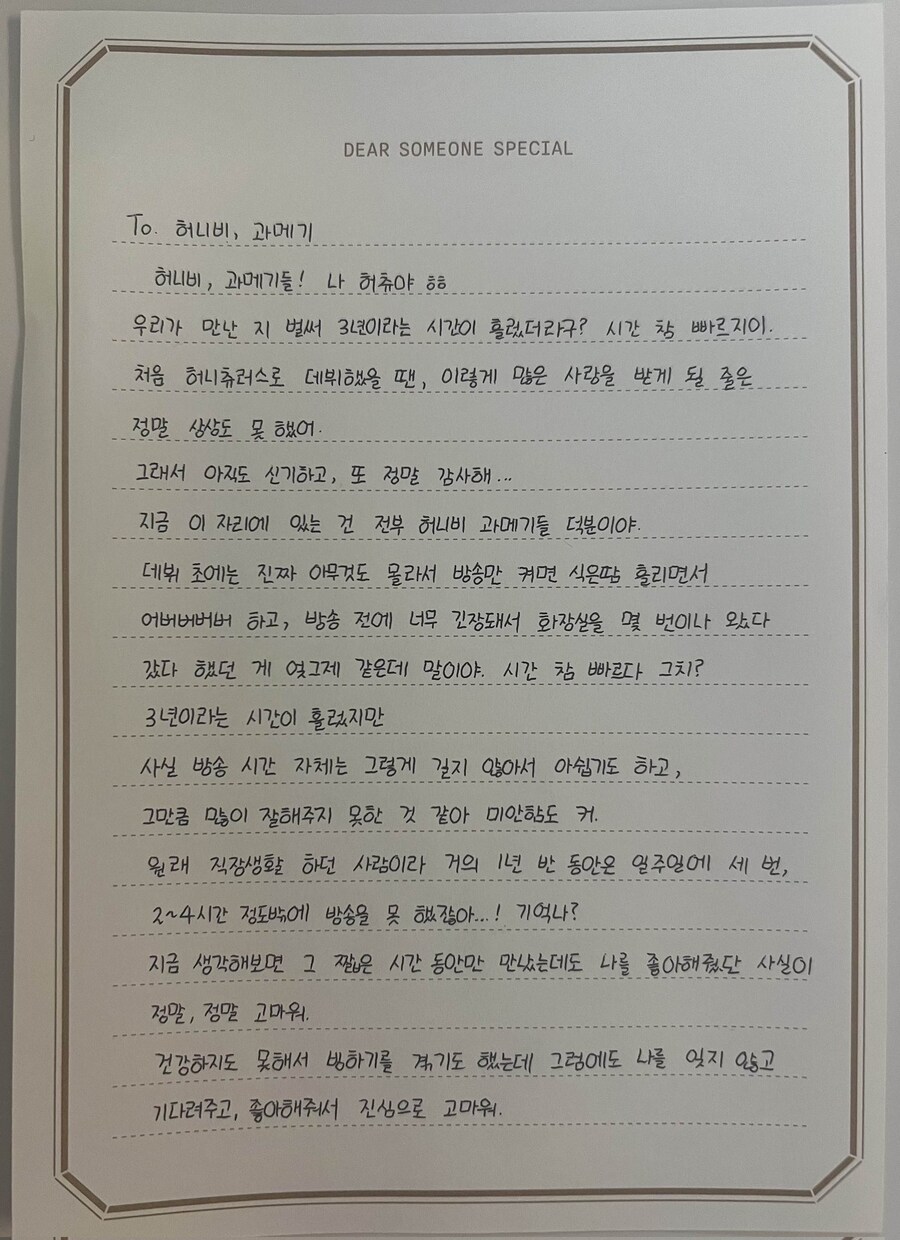 DEAR SOMEONE SPECIAL
To. 허니비, 과메기
허니비, 과메기들! 나 허츄야 ㅎㅎ
우리가 만난 지 벌써 3년이라는 시간이 흘렀더라구? 시간 참 빠르지이.
처음 허니츄러스로 데뷔했을 땐, 이렇게 많은 사랑을 받게 될 줄은
정말 상상도 못 했어.
그래서 아직도 신기하고, 또 정말 감사해...
지금 이 자리에 있는 건 전부 허니비 과메기들 덕분이야.
데뷔 초에는 진짜 아무것도 몰라서 방송만 켜면 식은땀 흘리면서
어버버버버 하고, 방송 전에 너무 긴장돼서 화장실을 몇 번이나 왔다
갔다 했던 게 엊그제 같은데 말이야. 시간 참 빠르다 그치?
3년이라는 시간이 흘렀지만
사실 방송 시간 자체는 그렇게 길지 않아서 아쉽기도 하고,
그만큼 많이 잘해주지 못한 것 같아 미안함도 커.
원래 직장생활 하던 사람이라 거의 1년 반 동안은 일주일에 세 번,
2~4시간 정도밖에 방송을 못 했잖아...! 기억나?
지금 생각해보면 그 짧은 시간 동안만 만났는데도 나를 좋아해줬단 사실이
정말, 정말 고마워.
건강하지도 못해서 방하기를 겪기도 했는데 그럼에도 나를 잊지 않고
기다려주고, 좋아해줘서 진심으로 고마워.